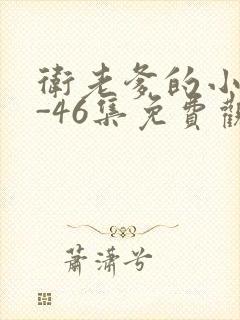 衛老爹的小
-46集免費觀
蕭瀟兮